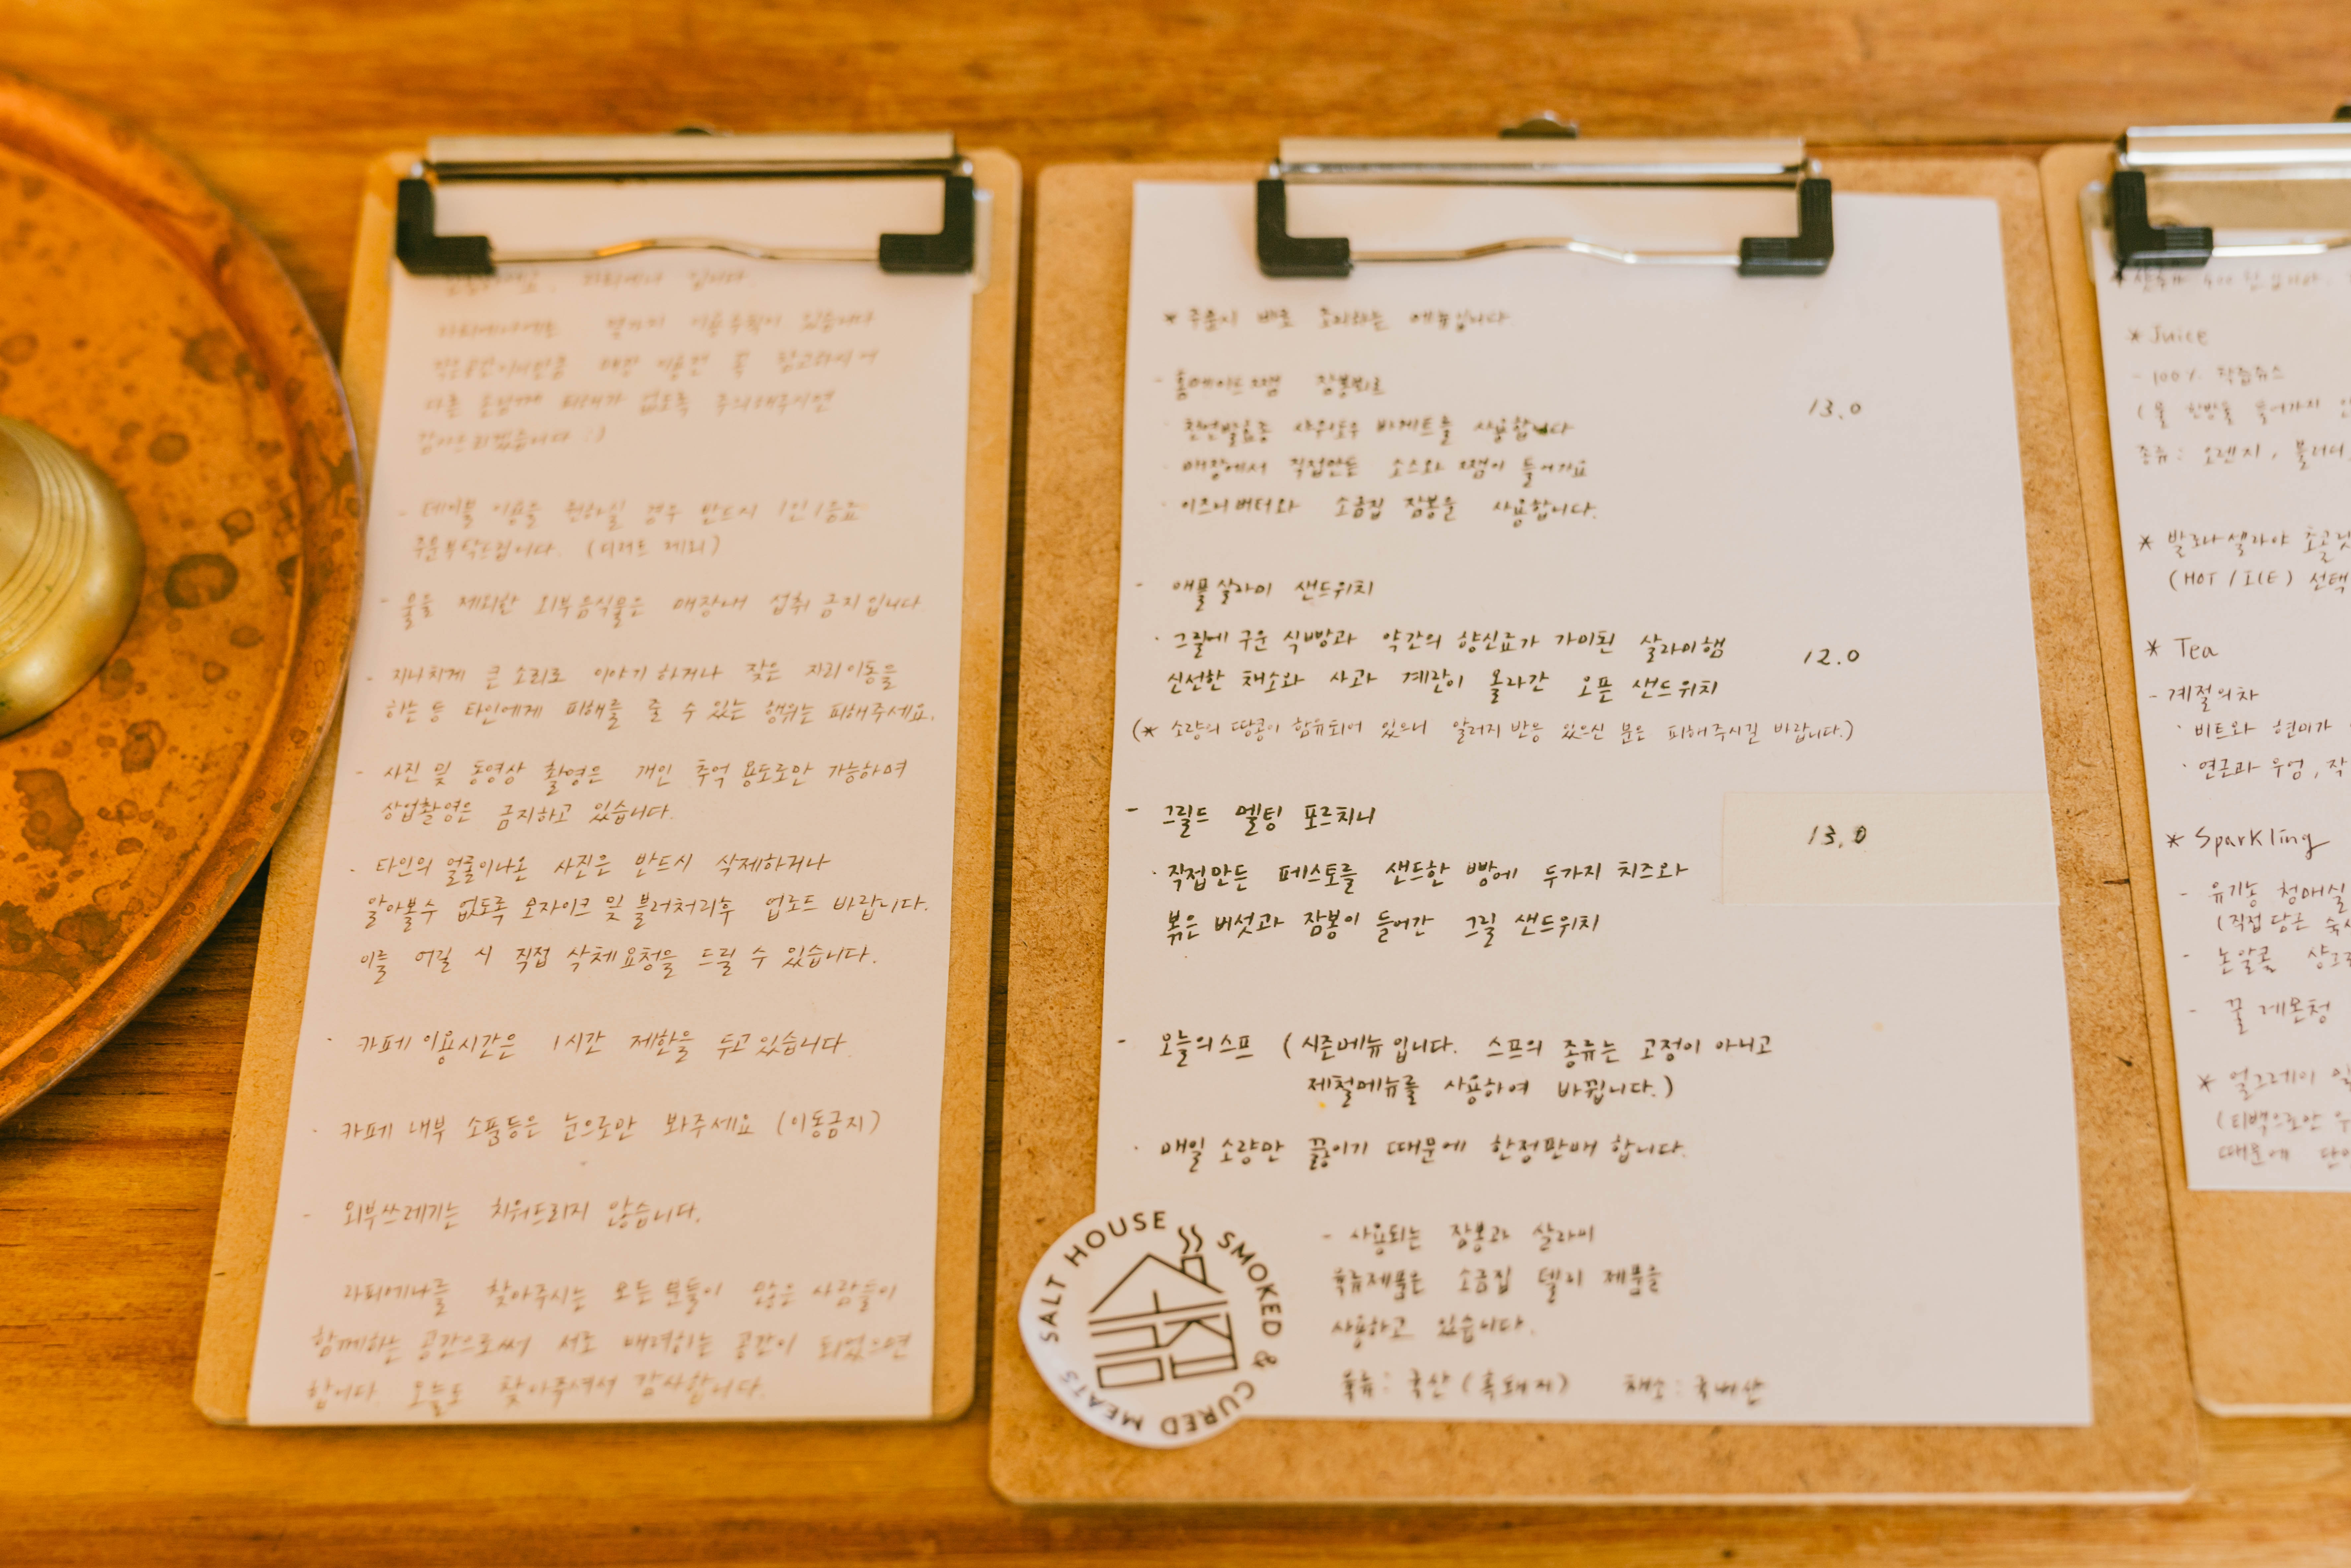 몇가지 이용수칙이 있습니다
작은공간이니만큼 매장 이용전 꼭 참고하시어
다른 손님께 피해가 없도록 주의해주시면
감사드리겠습니다 :)
- 테이블 이용을 원하실 경우 반드시 1인 1음료
주문부탁드립니다. (디저트 제외)
- 물을 제외한 외부음식물은 매장내 섭취 금지입니다.
- 지나치게 큰 소리로 이야기 하거나 잦은 자리이동을
하는 등 타인에게 피해를 줄 수 있는 행위는 피해주세요.
- 사진 및 동영상 촬영은 개인 추억 용도로만 가능하며
상업촬영은 금지하고 있습니다.
- 타인의 얼굴이나온 사진은 반드시 삭제하거나
알아볼수 없도록 모자이크 및 블러처리후 업로드 바랍니다.
이를 어길 시 직접 삭제요청을 드릴 수 있습니다.
- 카페 이용시간은 1시간 제한을 두고있습니다.
- 카페 내부 소품등은 눈으로만 봐주세요 (이동금지)
- 외부쓰레기는 치워드리지 않습니다.
라피에나를 찾아주시는 모든분들이 많은 사람들이
함께하는 공간으로써 서로 배려하는 공간이 되었으면
합니다. 오늘도 찾아주셔서 감사합니다.
* 주문시 바로 조리하는 메뉴입니다
- 홈메이드쨈 잠봉뵈르 13.0
· 천연발효종 사워도우 바게트를 사용합니다
· 매장에서 직접만든 소스와 쨈이 들어가요
· 이즈니버터와 소금집 잠봉을 사용합니다.
- 애플살라미 샌드위치
· 그릴에 구운 식빵과 약간의 향신료가 가미된 살라미햄 12.0
신선한 채소와 사과 계란이 올라간 오픈 샌드위치
(* 소량의 땅콩이 함유되어 있으니 알러지 반응 있으신 분은 피해주시길 바랍니다.)
- 그릴드 멜팅 포르치니 13.0
· 직접만든 페스토를 샌드한 빵에 두가지 치즈와
볶은 버섯과 잠봉이 들어간 그릴 샌드위치
- 오늘의스프 (시즌메뉴입니다. 스프의 종류는 고정이 아니고
제철메뉴를 사용하여 바뀝니다.)
· 매일 소량만 끓이기 때문에 한정판매 합니다.
- 사용되는 잠봉과 살라미
육류제품은 소금집 델리 제품을
사용하고 있습니다.
육류 : 국산 (흑돼지) 채소 : 국내산
SALT HOUSE SMOKED & CURED MEATS
* Juice
- 100% 착즙쥬스
(물 한방울 들어가지
종류 : 오렌지,
* 발로나 셀라야 초콜릿
(HOT / ICE) 선택
* Tea
- 계절의차
· 비트와 현미가
· 연근과 우엉, 작
* Sparkling
- 유기농 청매실
(직접 담근
- 논알콜
- 꿀 레몬청
* 얼그레이
(티백으로만
때문에